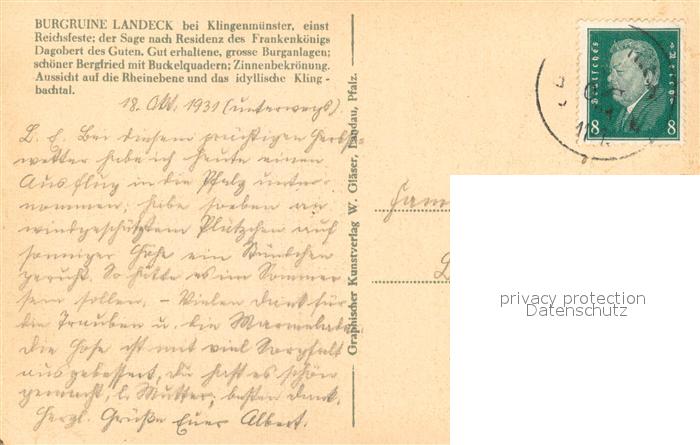 BURGRUINE LANDECK bei Klingenmünster, einst
Reichsfeste; der Sage nach Residenz des Frankenkönigs
Dagobert des Guten. Gut erhaltene, grosse Burganlagen;
schöner Bergfried mit Buckelquadern; Zinnenbekrönung.
Aussicht auf die Rheinebene und das idyllische Kling-
bachtal.
18. Okt. 1931 (unterwegs)
L. E. Bei diesem prächtigen Herbst-
wetter habe ich heute einen
Ausflug in die Pfalz unter-
nommen, habe soeben an
windgeschütztem Plätzchen auf
sonniger Höhe ein Stündchen
geruht. So hätte es im Sommer
sein sollen. – Vielen Dank für
die Trauben u. die Marmelade.
Die Hose ist mit viel Sorgfalt
ausgebessert, du hast es schön
gemacht, l. Mutter, besten Dank.
Herzl. Grüße Euer Albert.
Graphischer Kunstverlag W. Gläser, Landau, Pfalz.
Deutsches Reich
8 8
Fam
privacy protection
Datenschutz